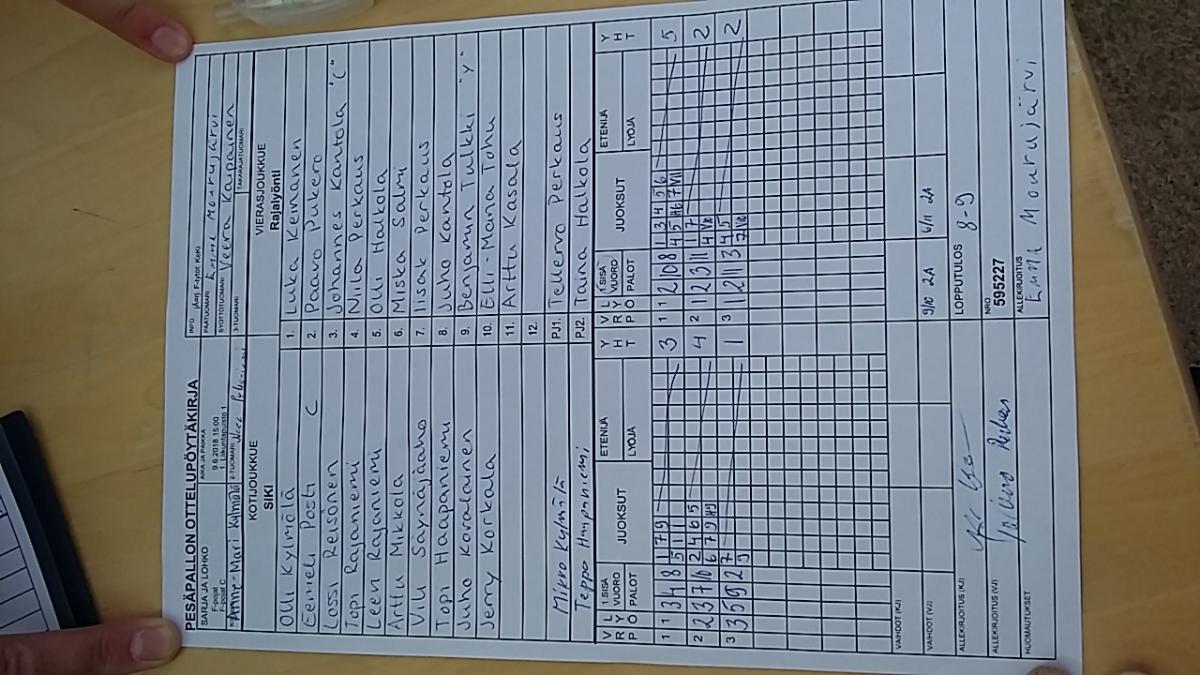 PESÄPALLON OTTELUPÖYTÄKIRJA
SARJA JA LOHKO
F-pojat
F-pojat C
AIKA JA PAIKKA
9.6.2018 15:00
1. Liikuntapuisto 1
INFO
PÄÄTUOMARI Emma Mourujärvi
SYÖTTÖTUOMARI Veera Karpainen
Anne-Mari Kylmälä
2-TUOMARI
3-TUOMARI
TAKARAJATUOMARI
KOTIJOUKKUE
SiKi
VIERASJOUKKUE
Rajalyönti
Olli Kylmölä 1. Luka Keinänen
Eemeli Posti C 2. Paavo Pukero
Lassi Reisönen 3. Johannes Kantola "C"
Topi Rajaniemi 4. Niila Perkaus
Leevi Rajaniemi 5. Olli Halkola
Arttu Mikkola 6. Miska Salmi
Vili Säynäjäaho 7. Iisak Perkaus
Topi Haapaniemi 8. Juho Kantola
Juho Korkalainen 9. Benjamin Tulkki "V"
Jerry Korkala 10. Elli-Maria Tohu
11. Arttu Kasala
12.
Mikko Kylmälä PJ1. Tellervo Perkaus
Teppo Haapaniemi PJ2. Taina Halkola
V R L Y P Ö 1 SISÄ VUORO PALOT JUOKSUT ETENIJÄ LYÖJÄ Y H T V R L Y P Ö 1 SISÄ VUORO PALOT JUOKSUT ETENIJÄ LYÖJÄ Y H T
1 1 3 4 8 1 7 9 3 1 1 2 10 8 1 3 4 5 6 5
5 1 1
2 2 3 7 10 2 4 6 5 4 2 1 2 3 11 1 7 2
6 7 9
3 3 5 9 2 7 1 3 1 2 11 3 4 5 2
9
VAIHDOT (KJ)
VAIHDOT (VJ) 9/10 2A 6/11 2A
ALLEKIRJOITUS (KJ)
LOPPUTULOS
8-9
ALLEKIRJOITUS (VJ)
NRO
595227
HUOMAUTUKSET
ALLEKIRJOITUS
Emma Mourujärvi